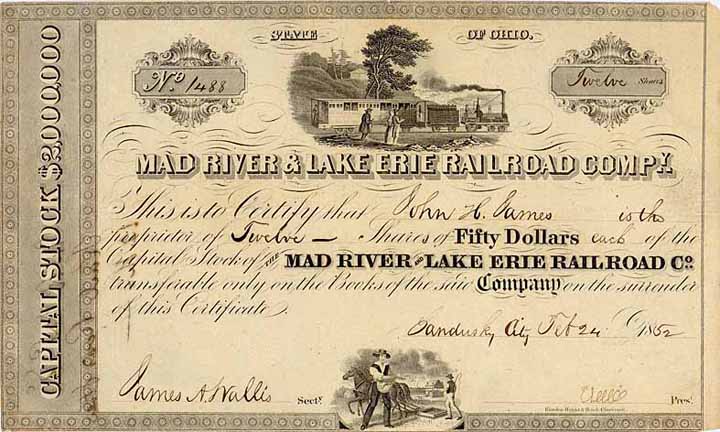 STATE OF OHIO.
No 1488
Twelve Shares
CAPITAL STOCK $2,000,000
MAD RIVER & LAKE ERIE RAILROAD COMPY.
This is to Certify that John H. James is the
proprietor of Twelve — Shares of Fifty Dollars each of the
Capital Stock of THE MAD RIVER AND LAKE ERIE RAILROAD Co.
transferable only on the Books of the said Company on the surrender
of this Certificate.
Sandusky City Feb 24 1852
James A. Wallis Secty. Prest.